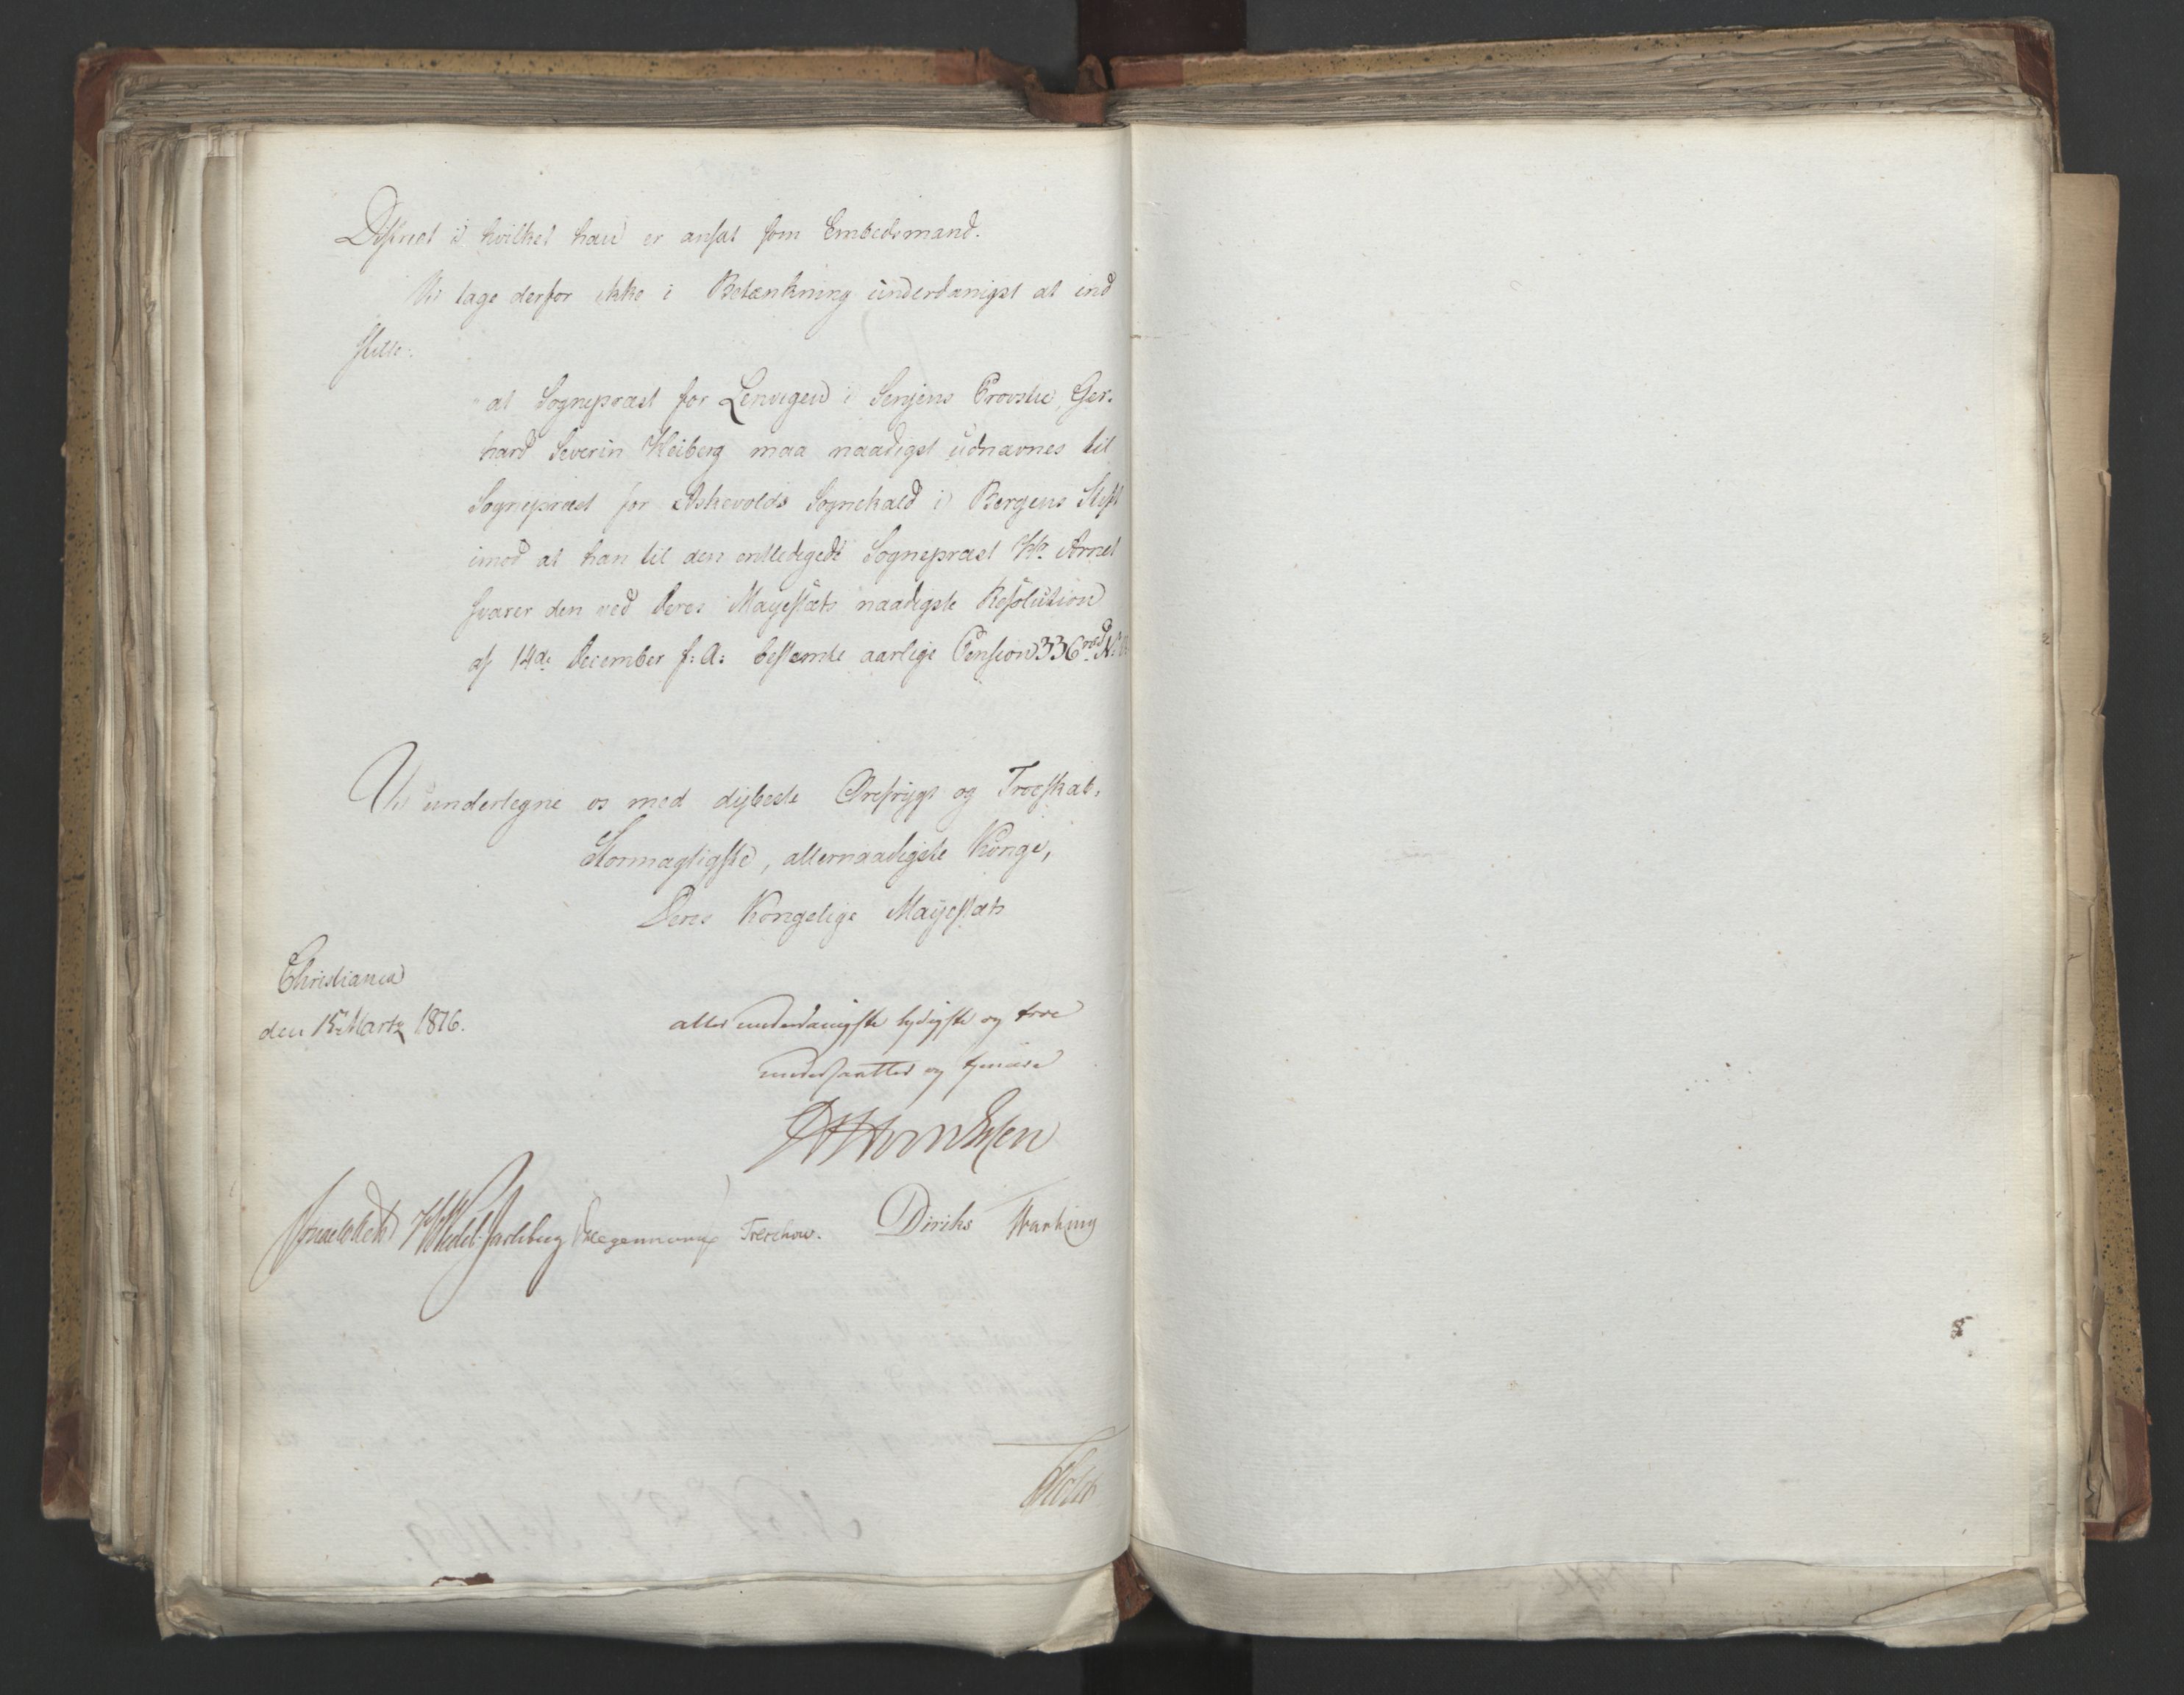 District i hvilket han er ansat som Embedsmand.
Vi tage derfor ikke i Betænkning underdanigst at ind
stille:
at Sognepræst for Lenvigen i Senjens Provstie, Ger-
hard Severin Heiberg maa naadigst udnævnes til
Sognepræst for Askevolds Sognekald i Bergens Stift
imod at han til den entledigede Sognepræst Hr. Arnet
svarer den ved Deres Mayestæts naadigste Resolution
af 14de December f: A: bestemte aarlige Pension 336 rbd N. V.
Vi undertegne os med dybeste Ærefrygt og Troeskab,
Stormægtigste, allernaadigste Konge,
Deres Kongelige Mayestæts
Christiania
den 15 Martz 1816.
allerunderdanigste lydigste og troe
undersaatter og tjenere
Sommelhielm HWedel-Jarlsberg Hegermann Treschow. Diriks Motzfeldt
Holst